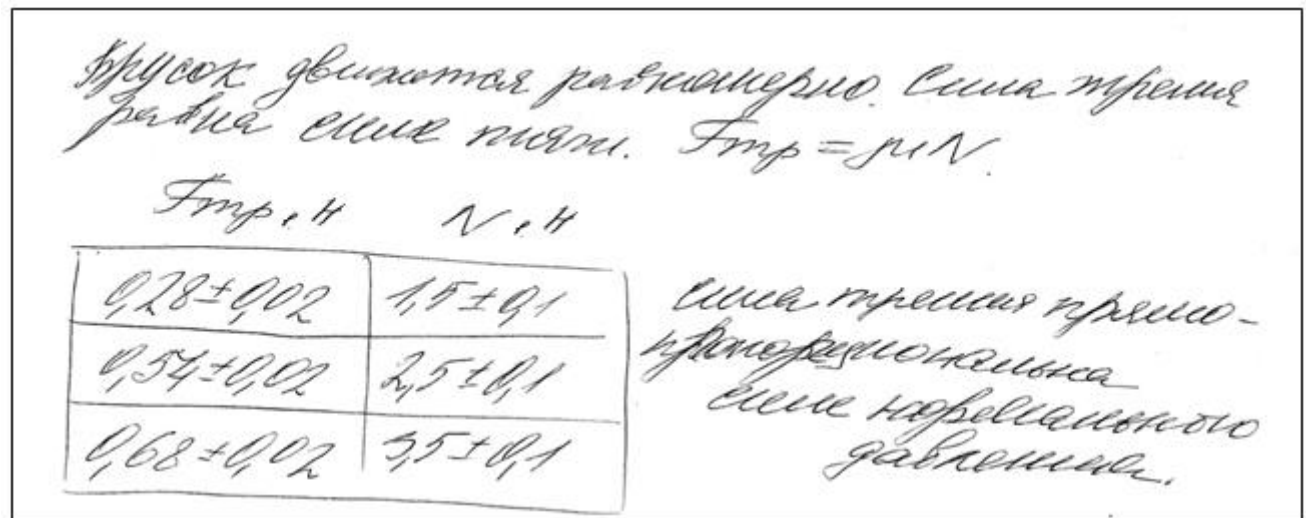 Брусок движется равномерно. Сила трения
равна силе тяги. Fтр = μN.
Fтр, Н N, Н
0,28±0,02 1,5±0,1
0,54±0,02 2,5±0,1
0,68±0,02 3,5±0,1
сила трения прямо-
пропорциональна
силе нормального
давления.